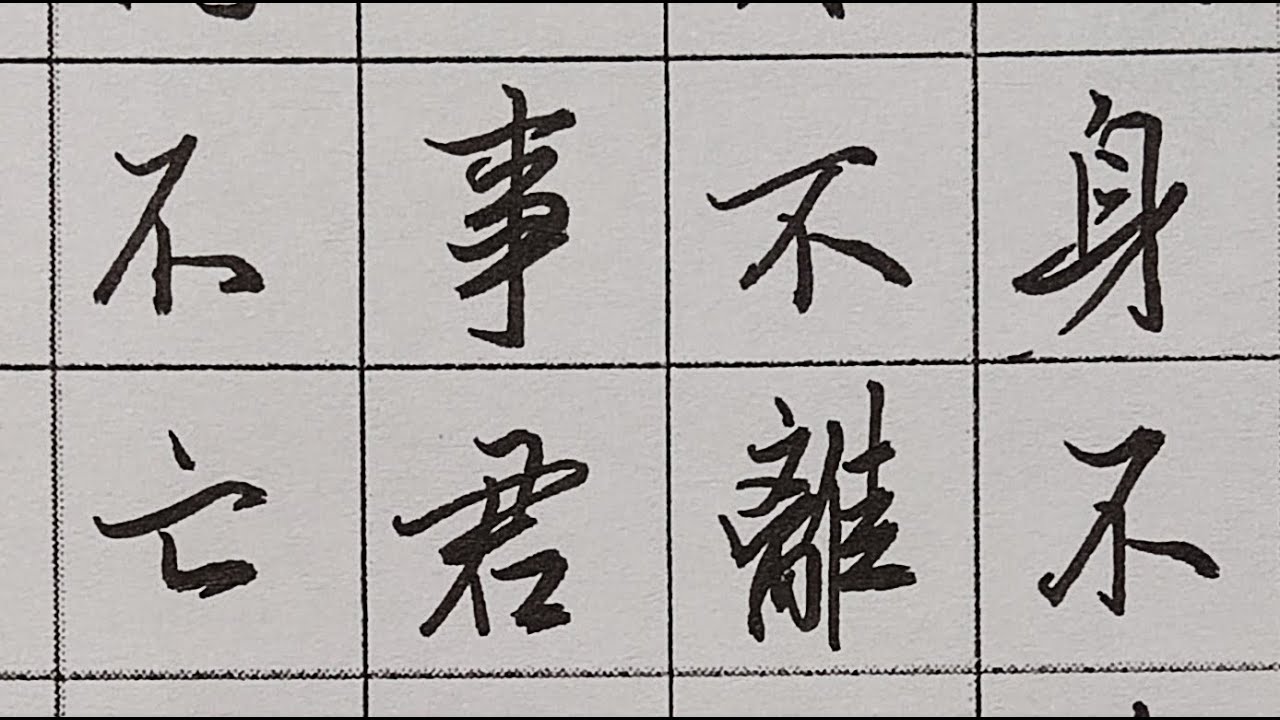 身不
不離
事君
不亡